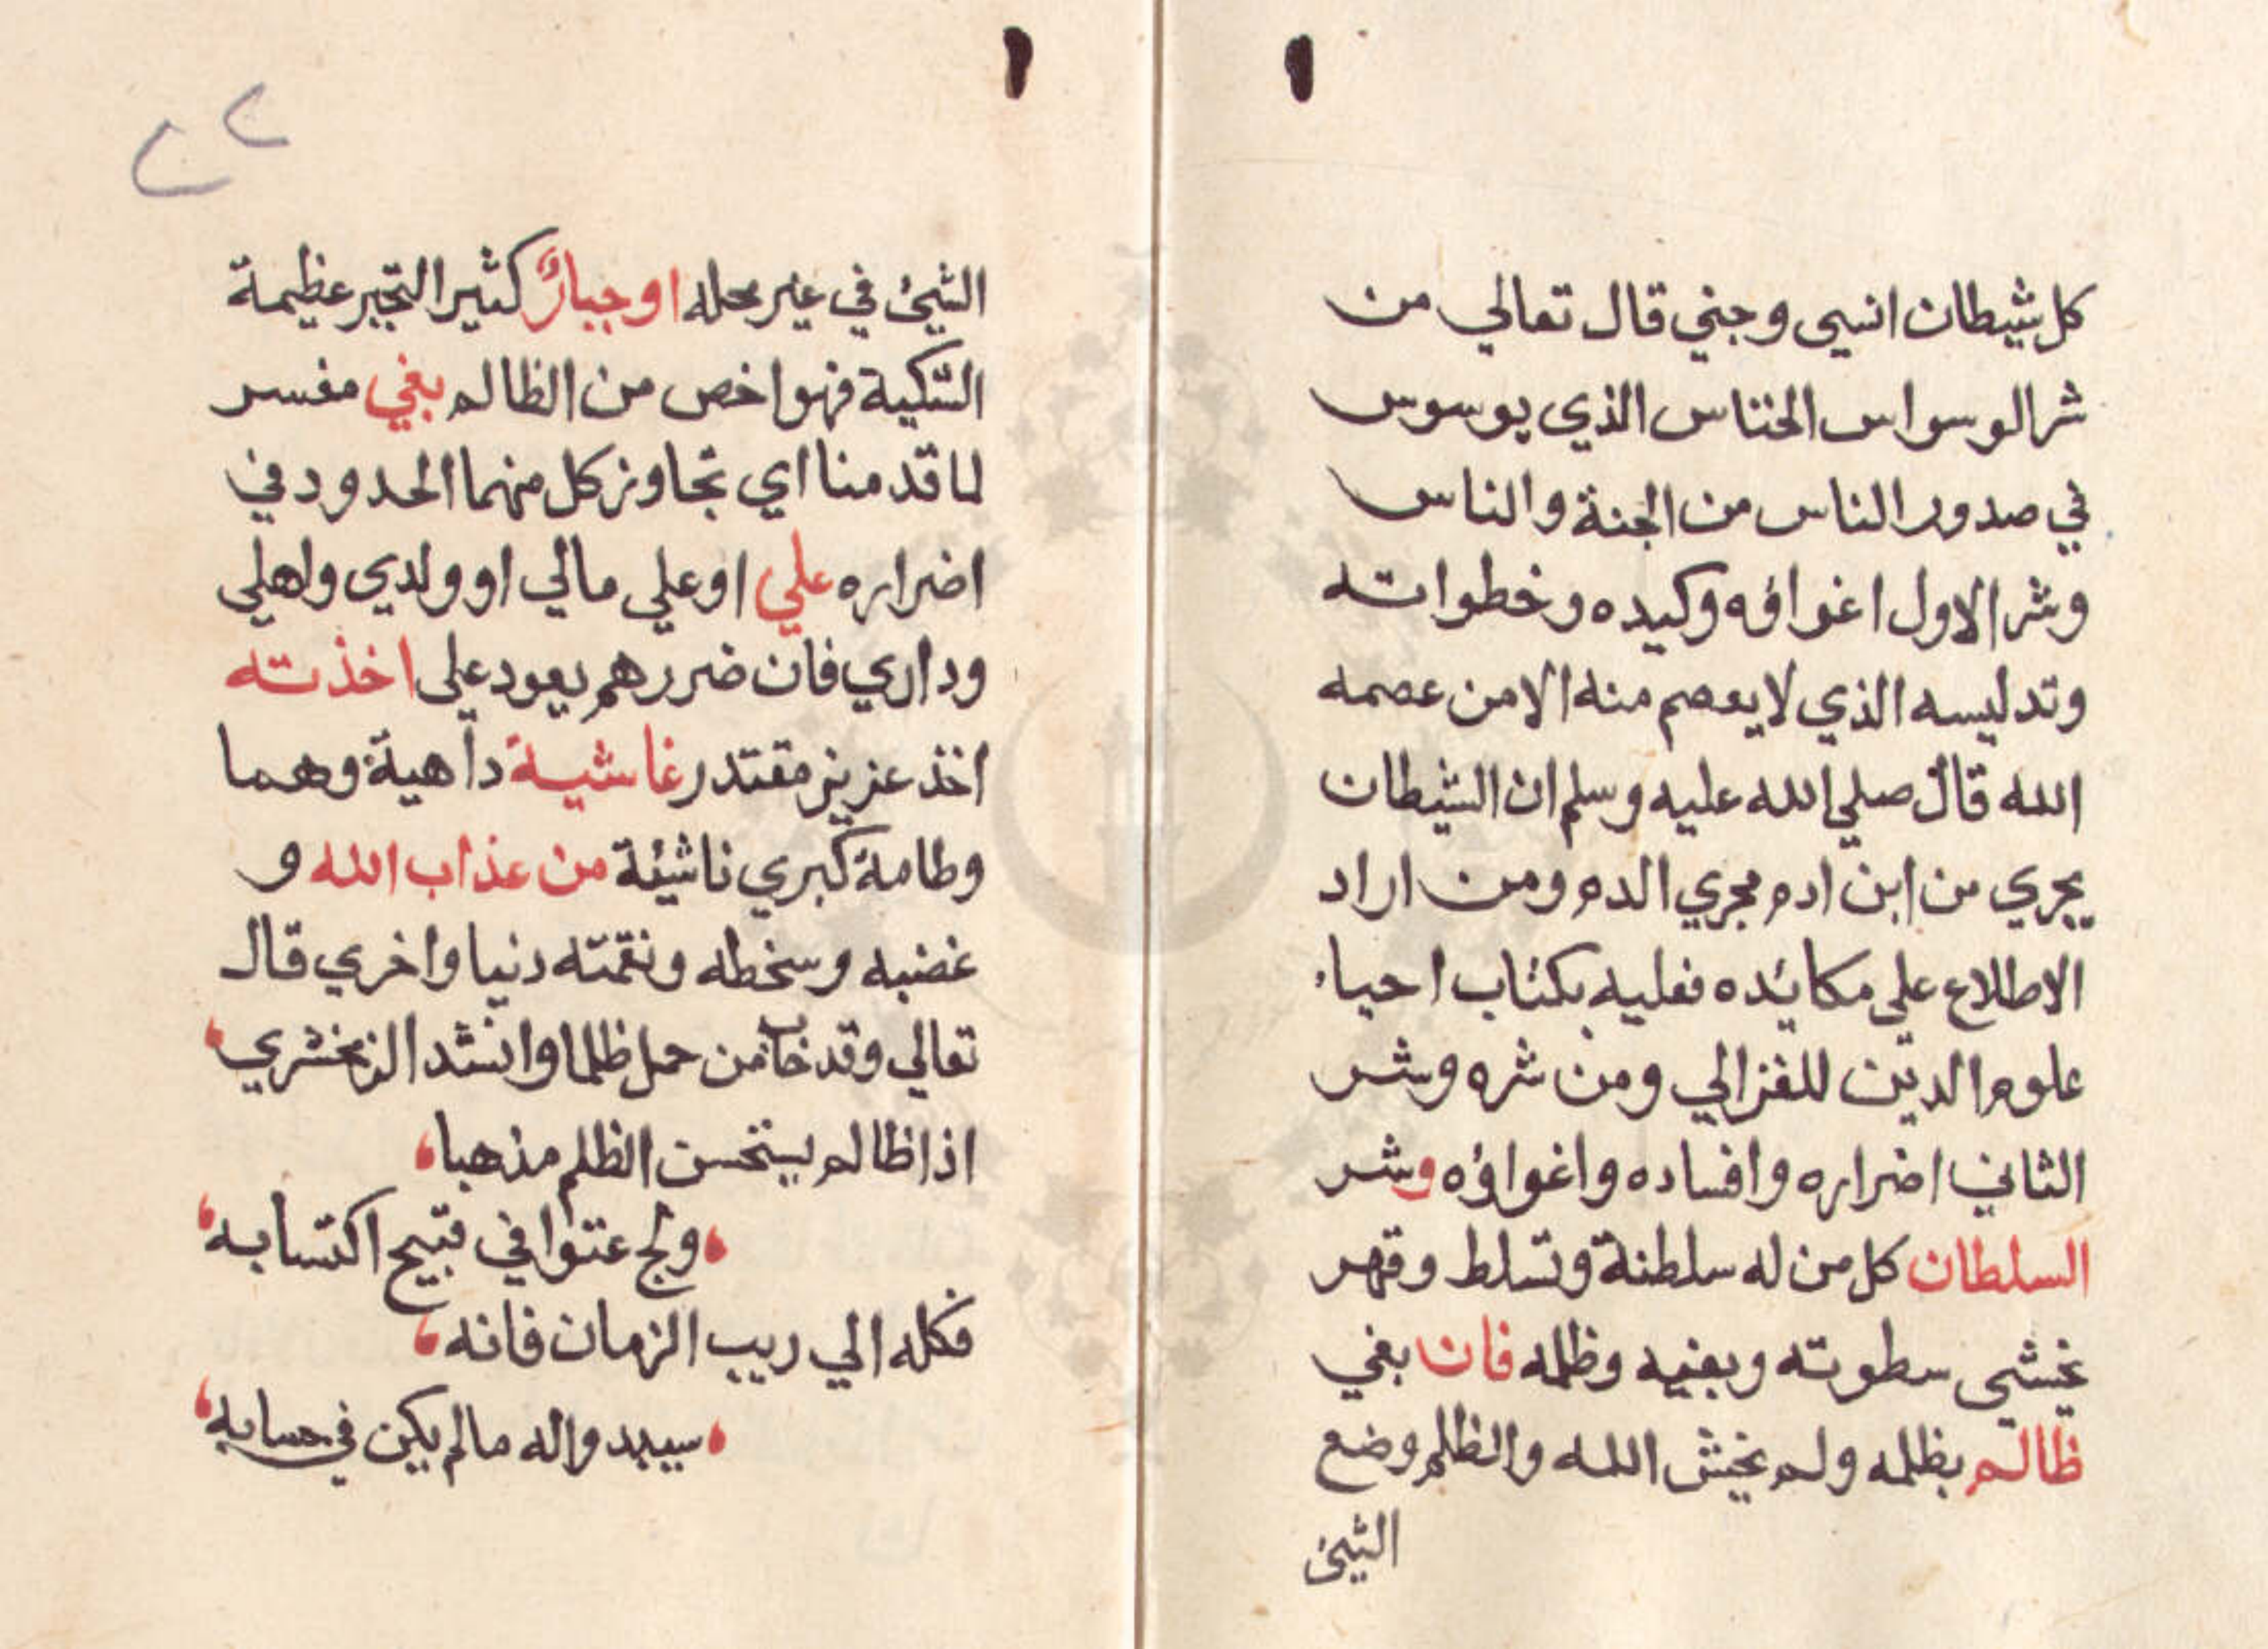 كل شيطان انسي وجني قال تعالي من
شر الوسواس الخناس الذي يوسوس
في صدور الناس من الجنة والناس
وشر الاول اغواؤه وكيده وخطواته
وتدليسه الذي لا يعصم منه الا من عصمه
الله قال صلي الله عليه وسلم ان الشيطان
يجري من ابن ادم مجري الدم ومن اراد
الاطلاع علي مكائده فعليه بكتاب احياء
علوم الدين للغزالي ومن شره وشر
الثاني اضراره وافساده واغواؤه وشر
السلطان كل من له سلطنة وتسلط وقهر
يخشي سطوته وبغيه وظلمه فان بغي
ظالم بظلمه ولم يخش الله والظلم وضع
الشيئ
الشيئ في غير محله او جبار كثير التجبر عظيمة
الشكية فهو اخص من الظالم بغي مفسر
لما قدمنا اي تجاوز كل منهما الحدود في
اضراره علي او علي مالي او ولدي واهلي
وداري فان ضررهم يعود علي اخذته
اخذ عزيز مقتدر غاشية داهية وهما
وطامة كبري ناشئة من عذاب الله و
غضبه وسخطه ونقمته دنيا واخري قال
تعالي وقد خاب من حمل ظلما وانشد الزمخشري
اذا ظالم يستحسن الظلم مذهبا
ولج عتوا في قبيح اكتسابه
فكله الي ريب الزمان فانه
سيبد واله مالم يكن في حسابه